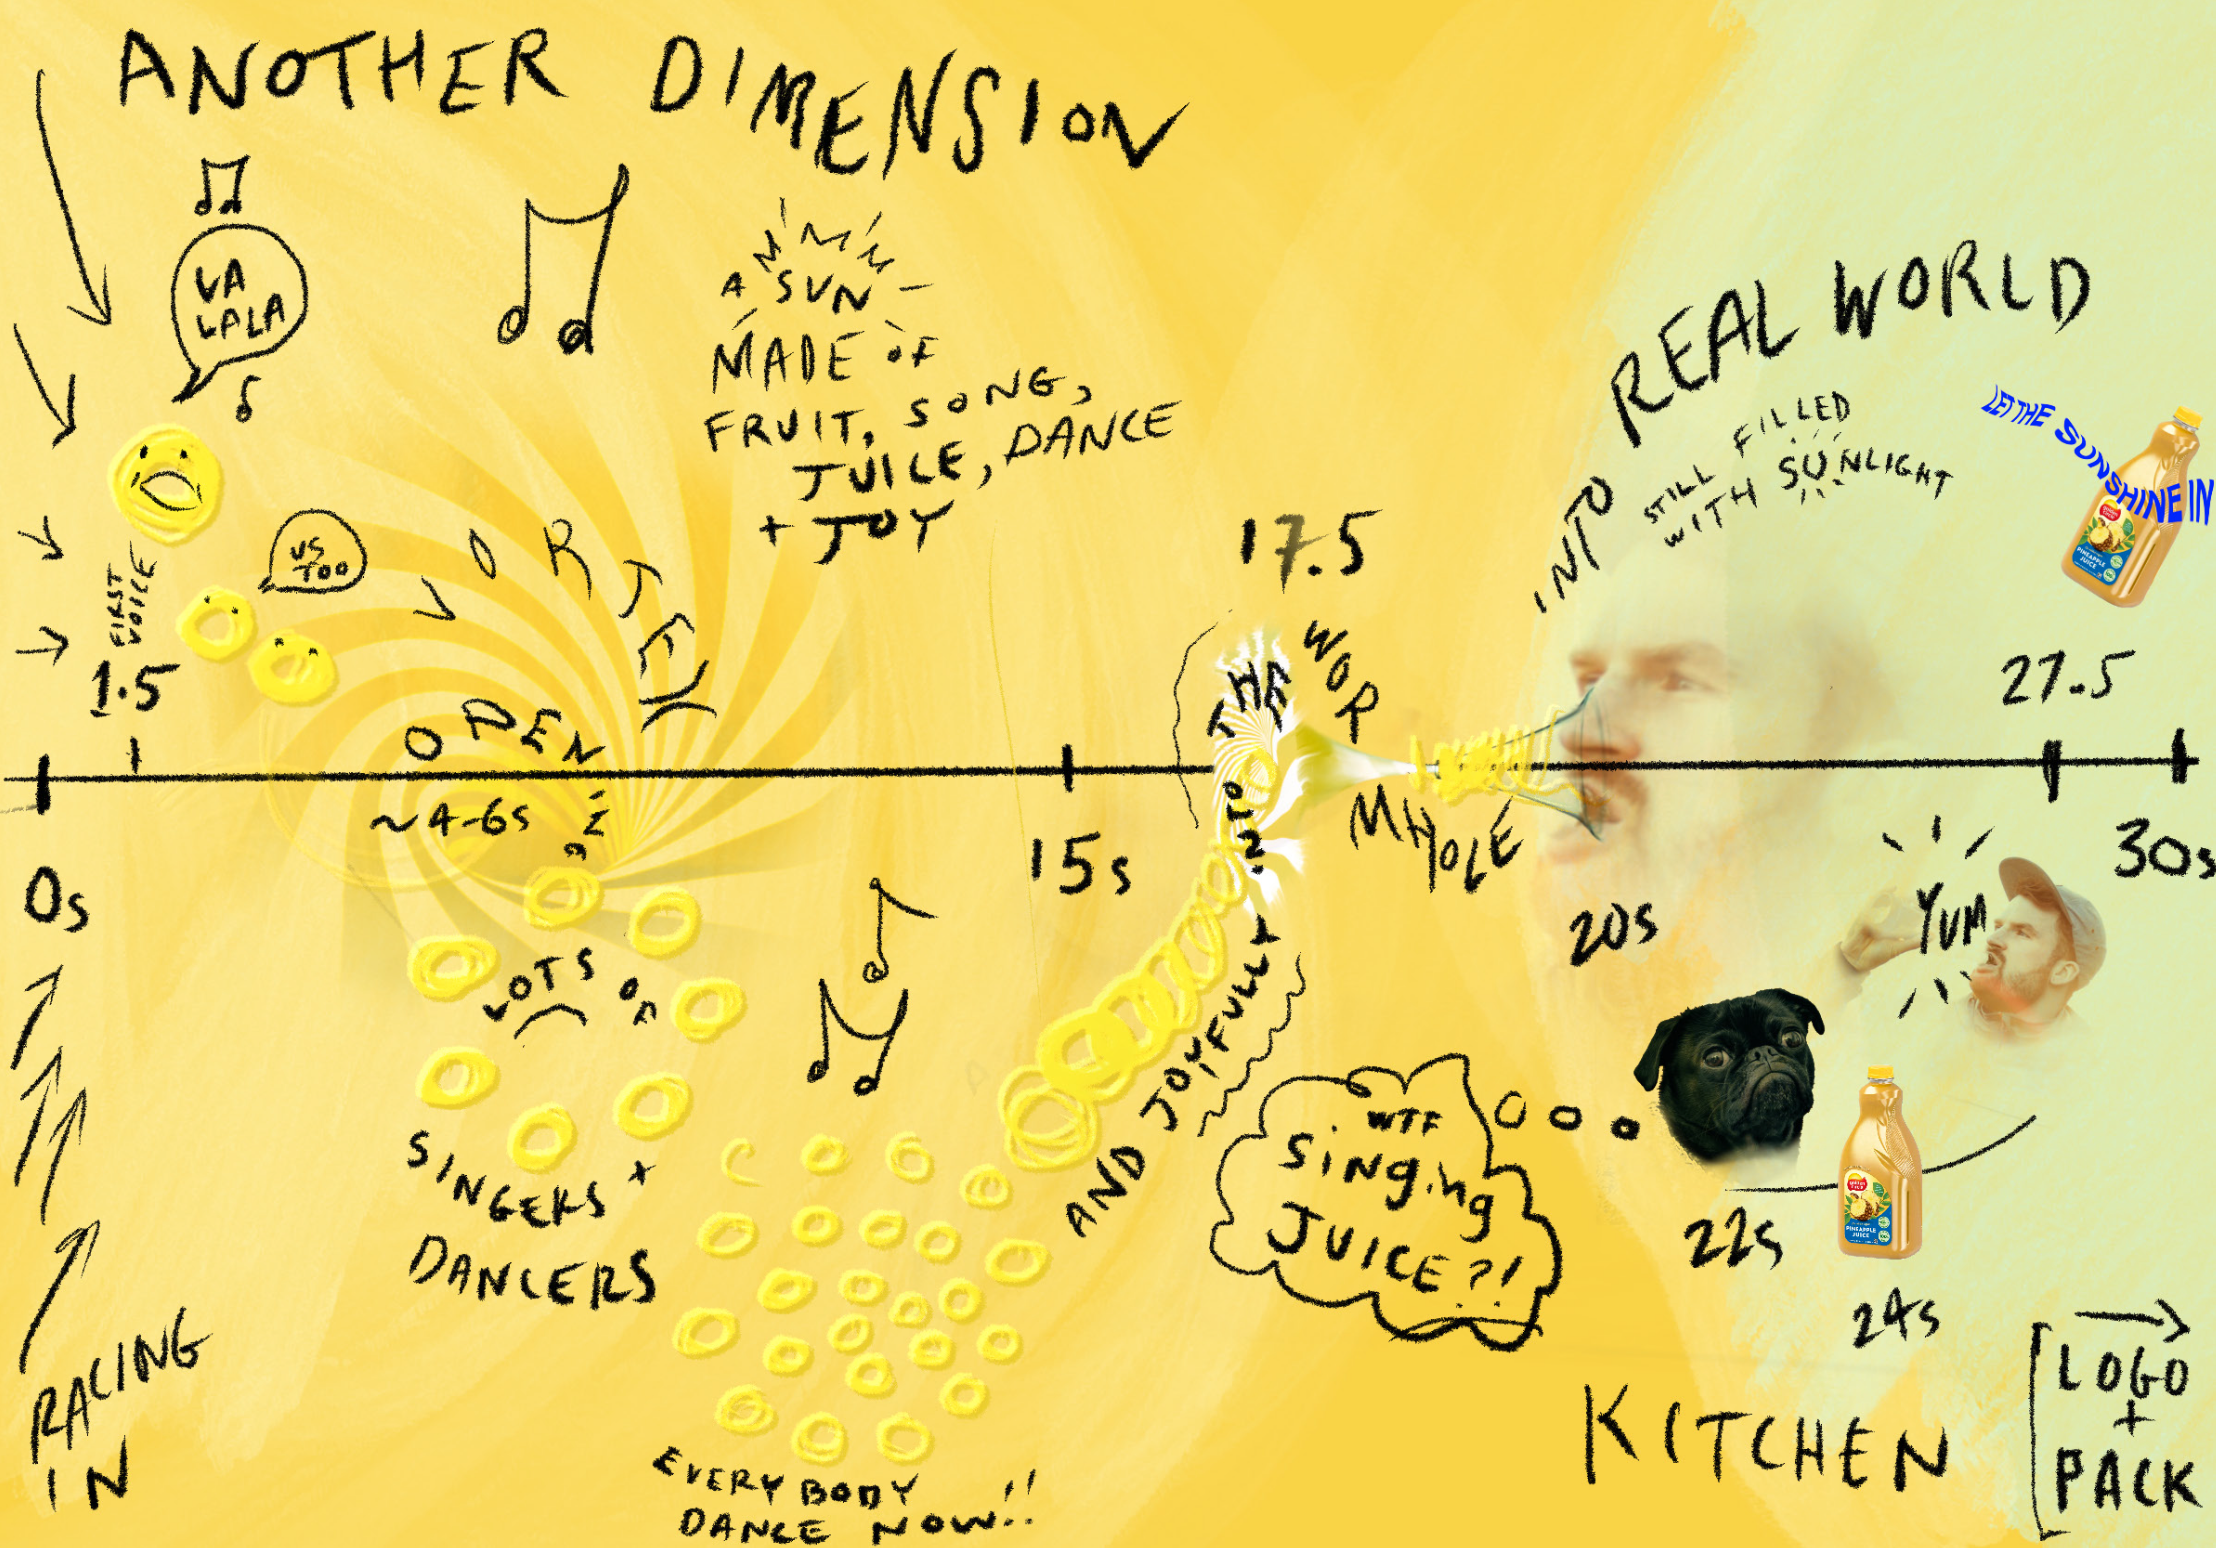 ANOTHER DIMENSION
LA
LALA
A SUN
MADE OF
FRUIT, SONG,
JUICE, DANCE
+ JOY
FIRST
VOICE
1.5
US
TOO
VORTEX
OPENING
~4-6s
0s
RACING
IN
LOTS OF
SINGERS +
DANCERS
EVERYBODY
DANCE NOW!!
15s
17.5
AND JOYFULLY INTO THE WORMHOLE
INTO REAL WORLD
STILL FILLED
WITH SUNLIGHT
LET THE SUNSHINE IN
PINEAPPLE
JUICE
27.5
30s
20s
YUM
WTF
SINGING
JUICE?!
22s
PINEAPPLE
JUICE
24s
KITCHEN
LOGO
+
PACK